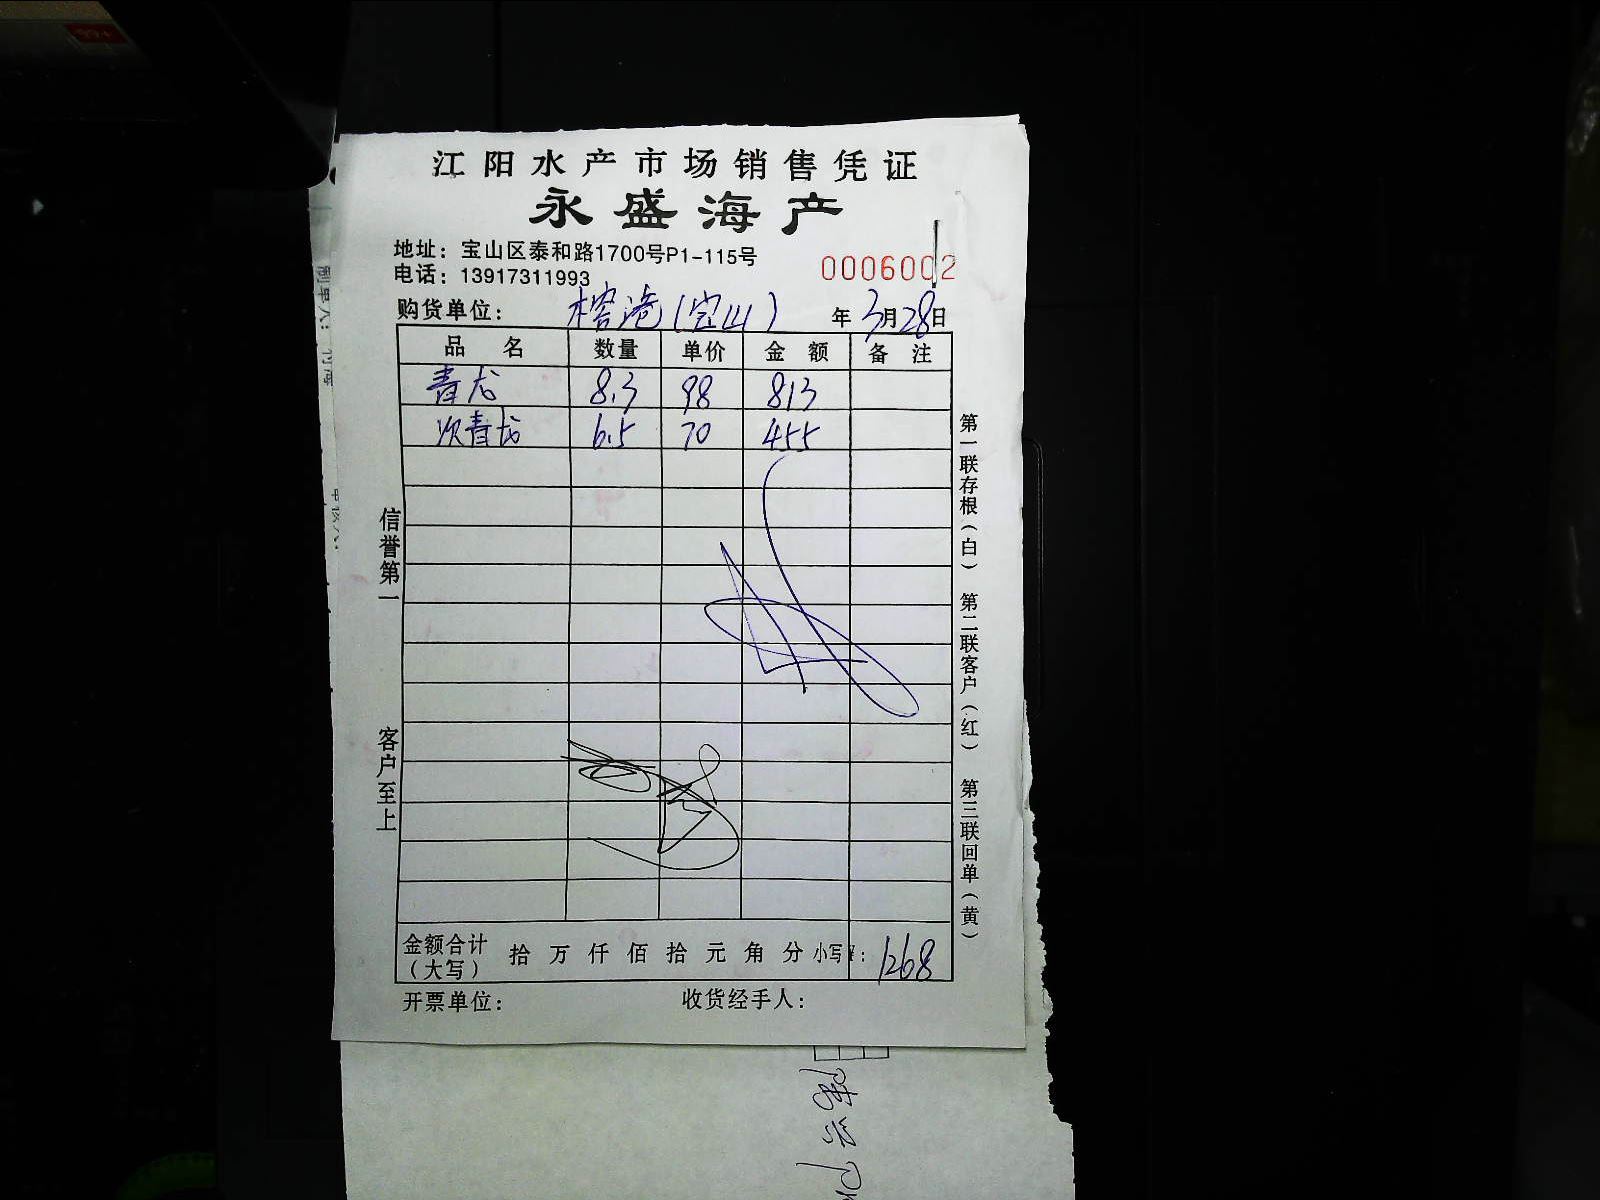 江阳水产市场销售凭证
永盛海产
地址：宝山区泰和路1700号P1-115号
电话：13917311993
0006002
购货单位：榕港(宝山) 年3月28日
品名 数量 单价 金额 备注
青龙 8.3 98 813
次青龙 6.5 70 455
信誉第一
客户至上
第一联存根(白) 第二联客户(红) 第三联回单(黄)
金额合计(大写) 拾 万 仟 佰 拾 元 角 分 小写¥: 1268
开票单位： 收货经手人：